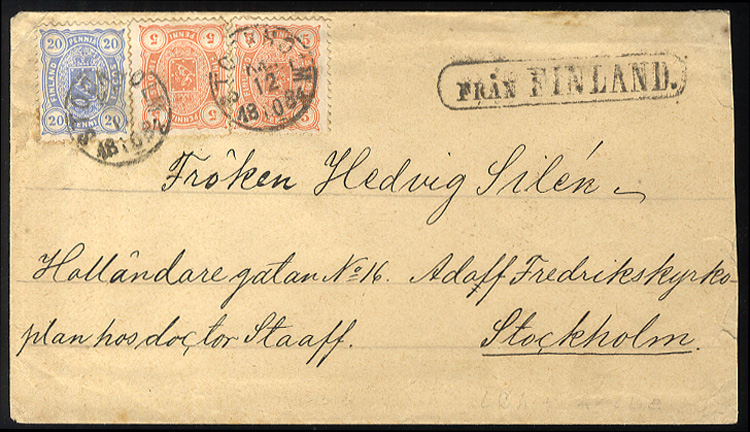 20 PENNIÄ 20
FINLAND
20 20
5 PENNIÄ 5
5 5
5
STOCKHOLM
18 10 82
STOCKHOLM
12
18 10 82
FRÅN FINLAND.
Fröken Hedvig Silén
Holländaregatan No 16. Adolf Fredrikskyrko-
plan hos doctor Staaff. Stockholm.